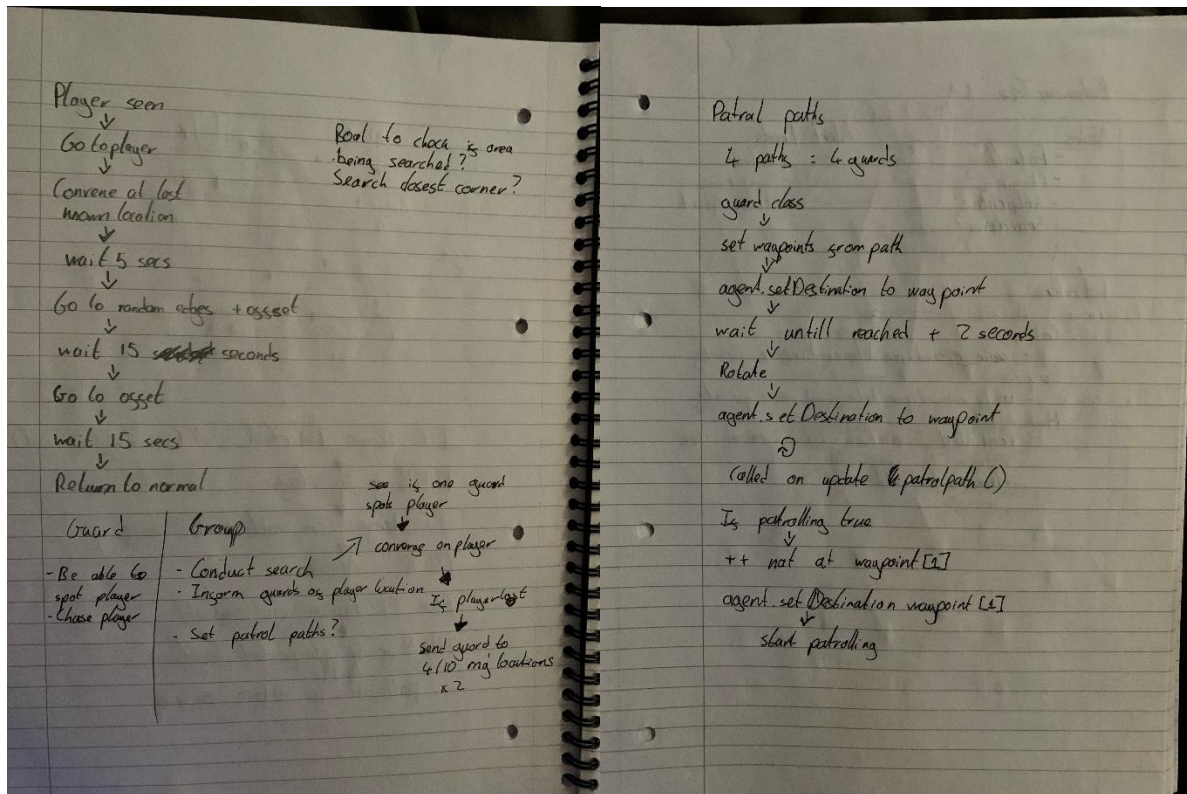 Player seen
↓
Go to player
↓
Convene at last
known location
↓
wait 5 secs
↓
Go to random edges + offset
↓
wait 15 seconds
↓
Go to offset
↓
wait 15 secs
↓
Return to normal
Bool to check if area
being searched?
Search closest corner?
Guard
- Be able to
spot player
- Chase player
Group
- Conduct search
- Inform guards of player location
- Set patrol paths?
see if one guard
spots player
↓
converge on player
↓
If player lost
↓
send guard to
4/10 locations
x 2
Patrol paths
4 paths = 4 guards
guard class
↓
set waypoints from path
↓
agent.setDestination to waypoint
↓
wait untill reached + 2 seconds
↓
Rotate
↓
agent.setDestination to waypoint
Called on update patrolpath()
If patrolling true
↓
++ not at waypoint[1]
agent.setDestination waypoint[1]
↓
start patrolling